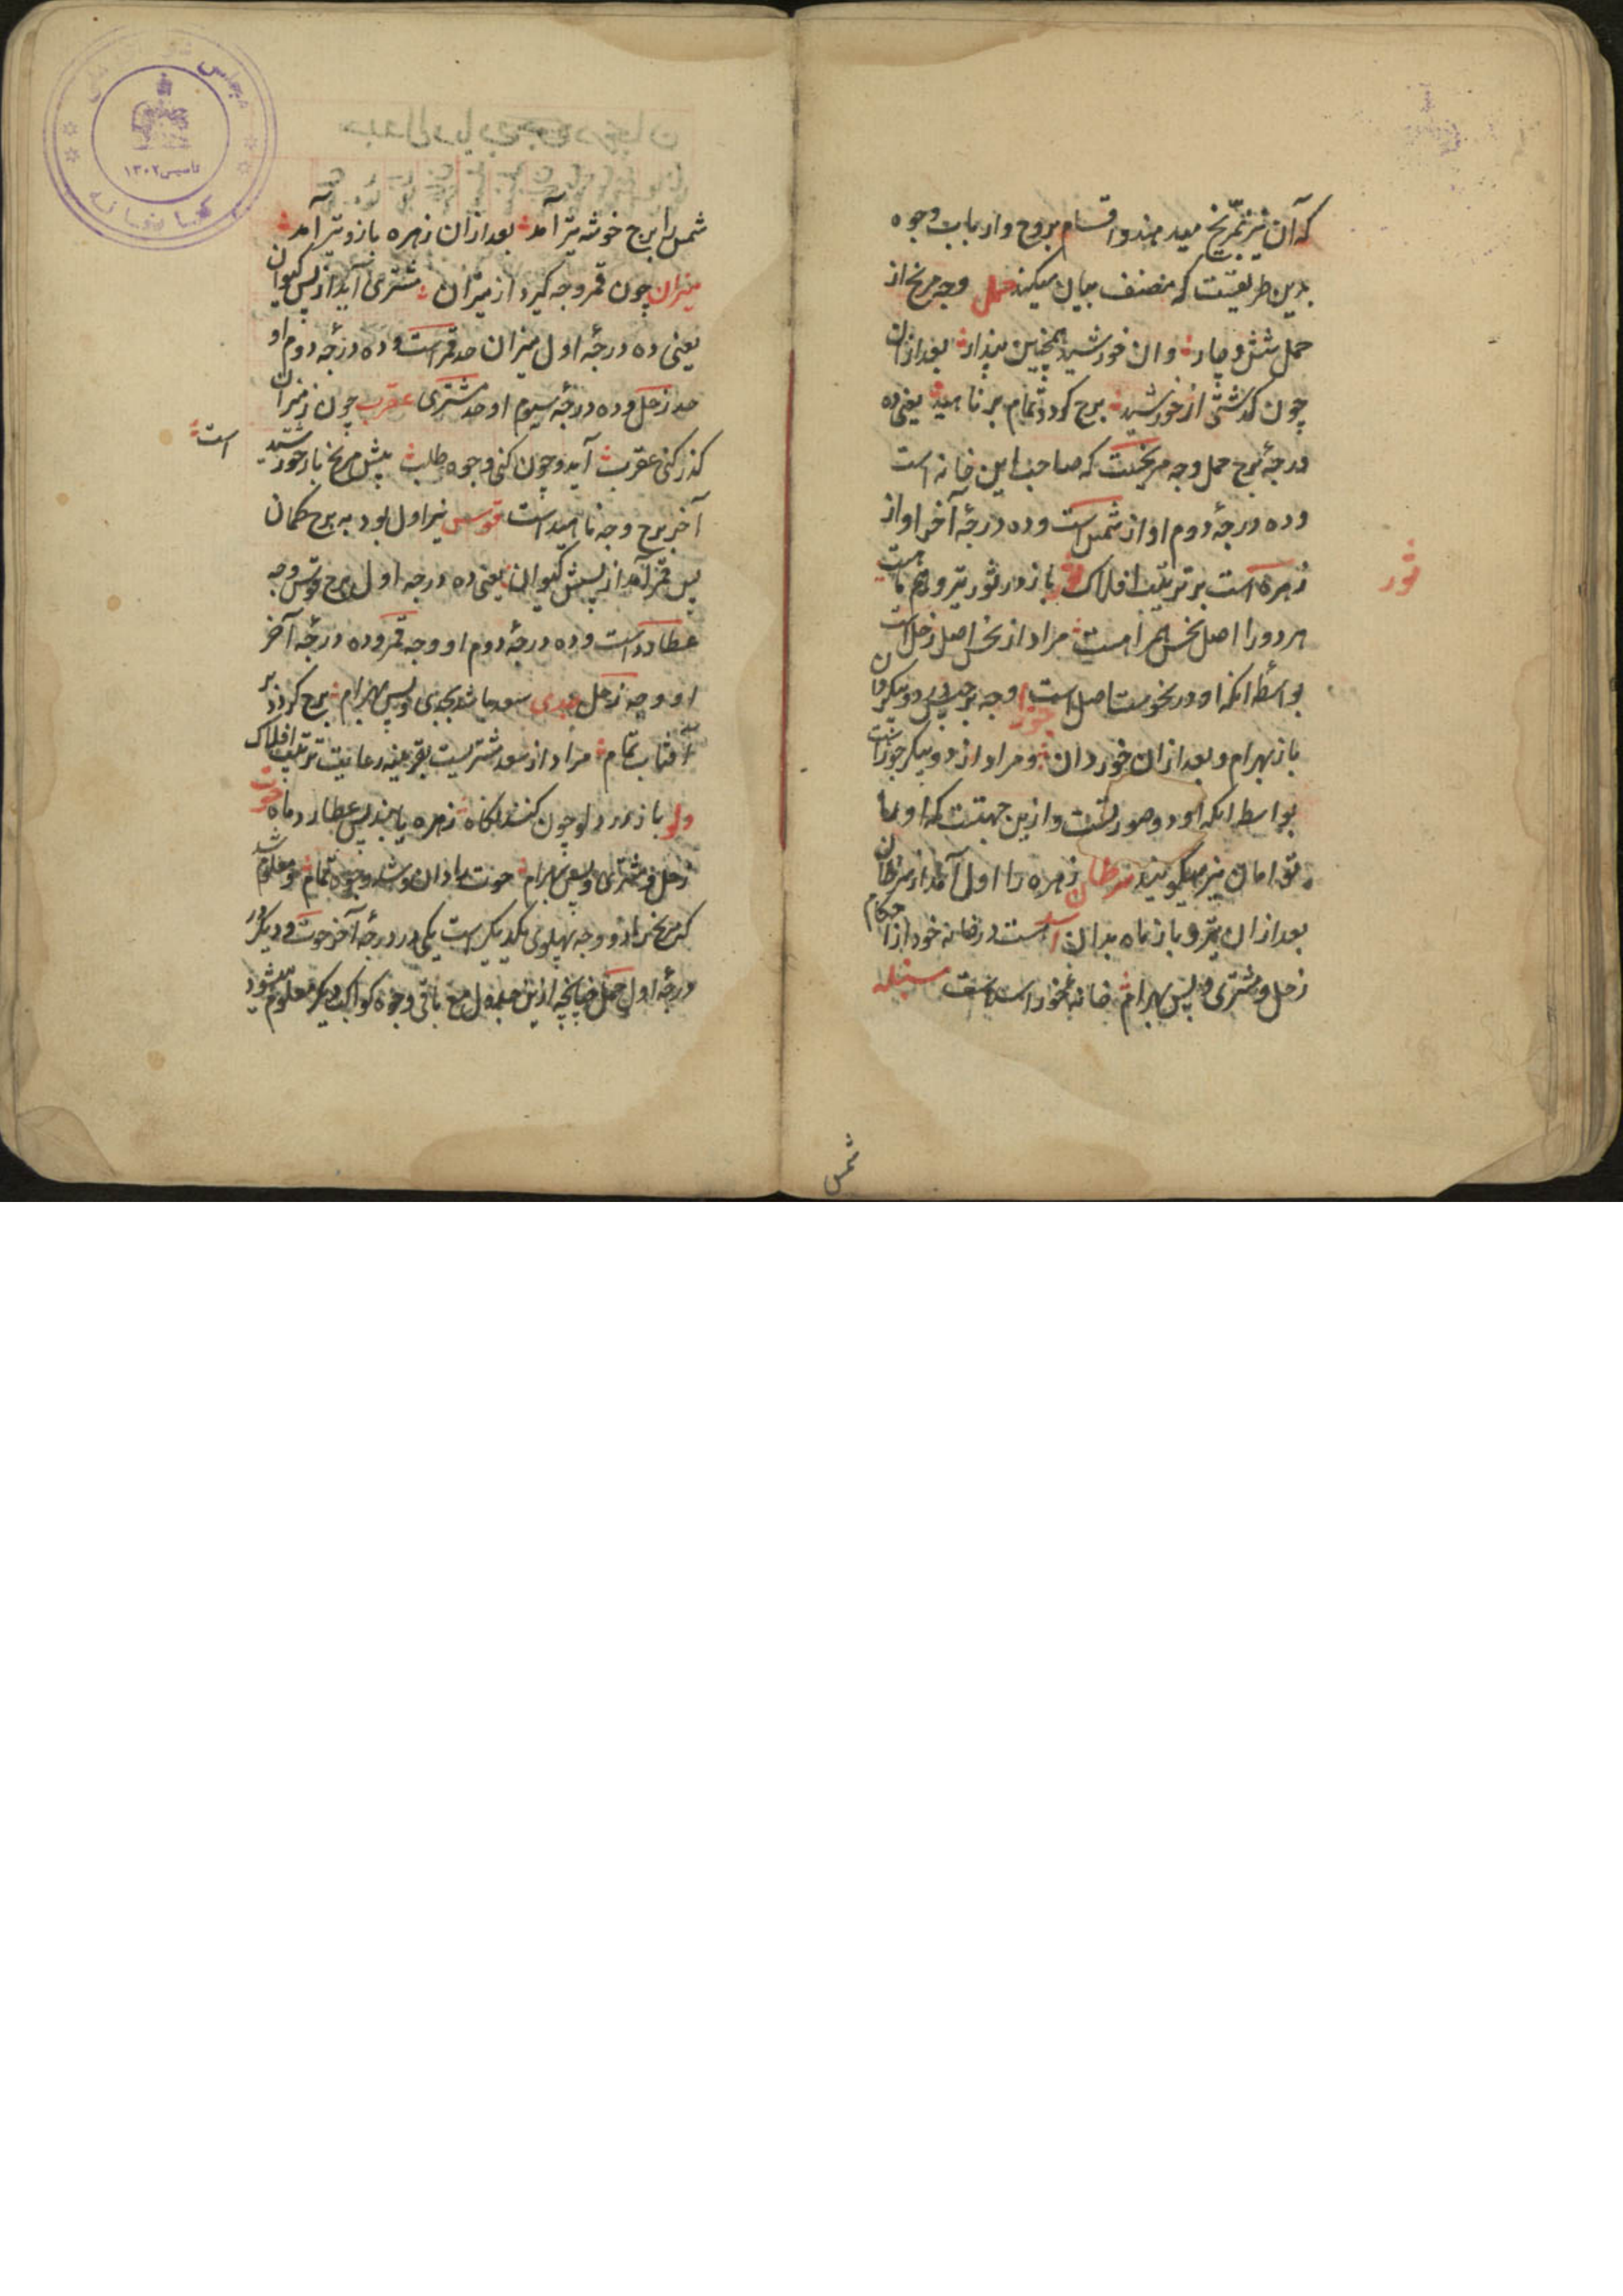 که آن نیز بمریخ میدهند و اقسام بروج و ارباب وجوه
بدین طریقست که مصنف بیان میکند حمل وجه مریخ از
حمل شش و چار وان خورشید همچنین پندار بعد ازان
چون گذشتی از خورشید برج گردد تمام بر ناهید یعنی ده
درجهٔ برج حمل وجه مریخست که صاحب این خانه است
و ده درجهٔ دوم او از شمس است و ده درجهٔ آخر او از
زهره است بر ترتیب افلاک ثور باز در ثور تیر و هم ماهست
ثور
هر دو را اصل نحس همراهست مراد از نحس اصل زحل است
بواسطهٔ آنکه او در نحوست اصل است جوزا وجه برجیس دو پیکر دان
باز بهرام و بعد ازان خور دان و مراد از دو پیکر جوزاست
بواسطه آنکه او دو صورتست و ازین جهتست که او را
توامان نیز میگویند سرطان زهره را اول آمد از سرطان
بعد ازان تیر و باز ماه بدان اسد است در خانه خود از احکام
زحل و مشتری و پس بهرام خانه خور اسد سنبله
شمس
شمس را برج خوشه تیر آمد بعد ازان زهره باز و تیر آمد
میزان چون قمر وجه گیرد از میزان مشتری آید از پس کیوان
یعنی ده درجهٔ اول میزان حد قمر است و ده درجه دوم او
حد زحل و ده درجهٔ سیوم او حد مشتری عقرب چون ز میزان
گذر کنی عقرب آید و چون کنی وجوه طلب پیش مریخ باز خورشید
است
آخر برج وجه ناهید است قوس تیر اول بود به برج کمان
پس قمر آمد از پسش کیوان یعنی ده درجه اول برج قوس وجه
عطارد است و ده درجهٔ دوم او وجه قمر و ده درجهٔ آخر
او وجه زحل جدی سعد باشد بجدی و پس بهرام برج گردد بر
آفتاب تمام مراد از سعد مشتریست بقرینه رعایت ترتیب افلاک
دلو باز در دلو چون کنند نگاه زهره یابند پس عطارد و ماه حوت
زحل و مشتری و پس بهرام حوت را دان و شد وجوه تمام و معلوم شد
که مریخ را دو وجه پهلوی یکدیگر است یکی در درجهٔ آخر حوت و دیگر در
درجهٔ اول حمل چنانچه ازین جدول مع باقی وجوه کواکب دیگر معلوم میشود
مجلس
تاسیس ۱۳۰۲
کتابخانه